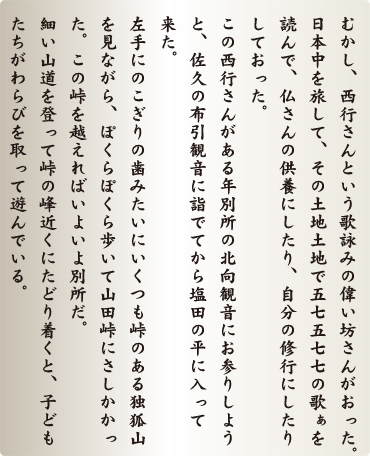 むかし、西行さんという歌詠みの偉い坊さんがおった。
日本中を旅して、その土地土地で五七五七七の歌ぁを
読んで、仏さんの供養にしたり、自分の修行にしたり
しておった。
この西行さんがある年別所の北向観音にお参りしよう
と、佐久の布引観音に詣でてから塩田の平に入って
来た。
左手にのこぎりの歯みたいにいくつも峠のある独狐山
を見ながら、ぽくらぽくら歩いて山田峠にさしかかっ
た。この峠を越えればいよいよ別所だ。
細い山道を登って峠の峰近くにたどり着くと、子ども
たちがわらびを取って遊んでいる。